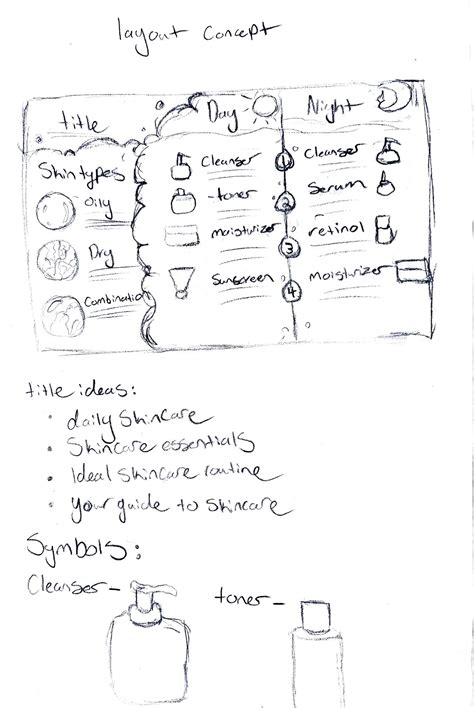 layout concept
title
Skin types
Oily
Dry
Combination
Day
Cleanser
toner
moisturizer
Sunscreen
1
2
3
4
Night
Cleanser
Serum
retinol
Moistirizer
title ideas:
• daily skincare
• Skincare essentials
• Ideal skincare routine
• your guide to skincare
Symbols:
Cleanser-
toner-